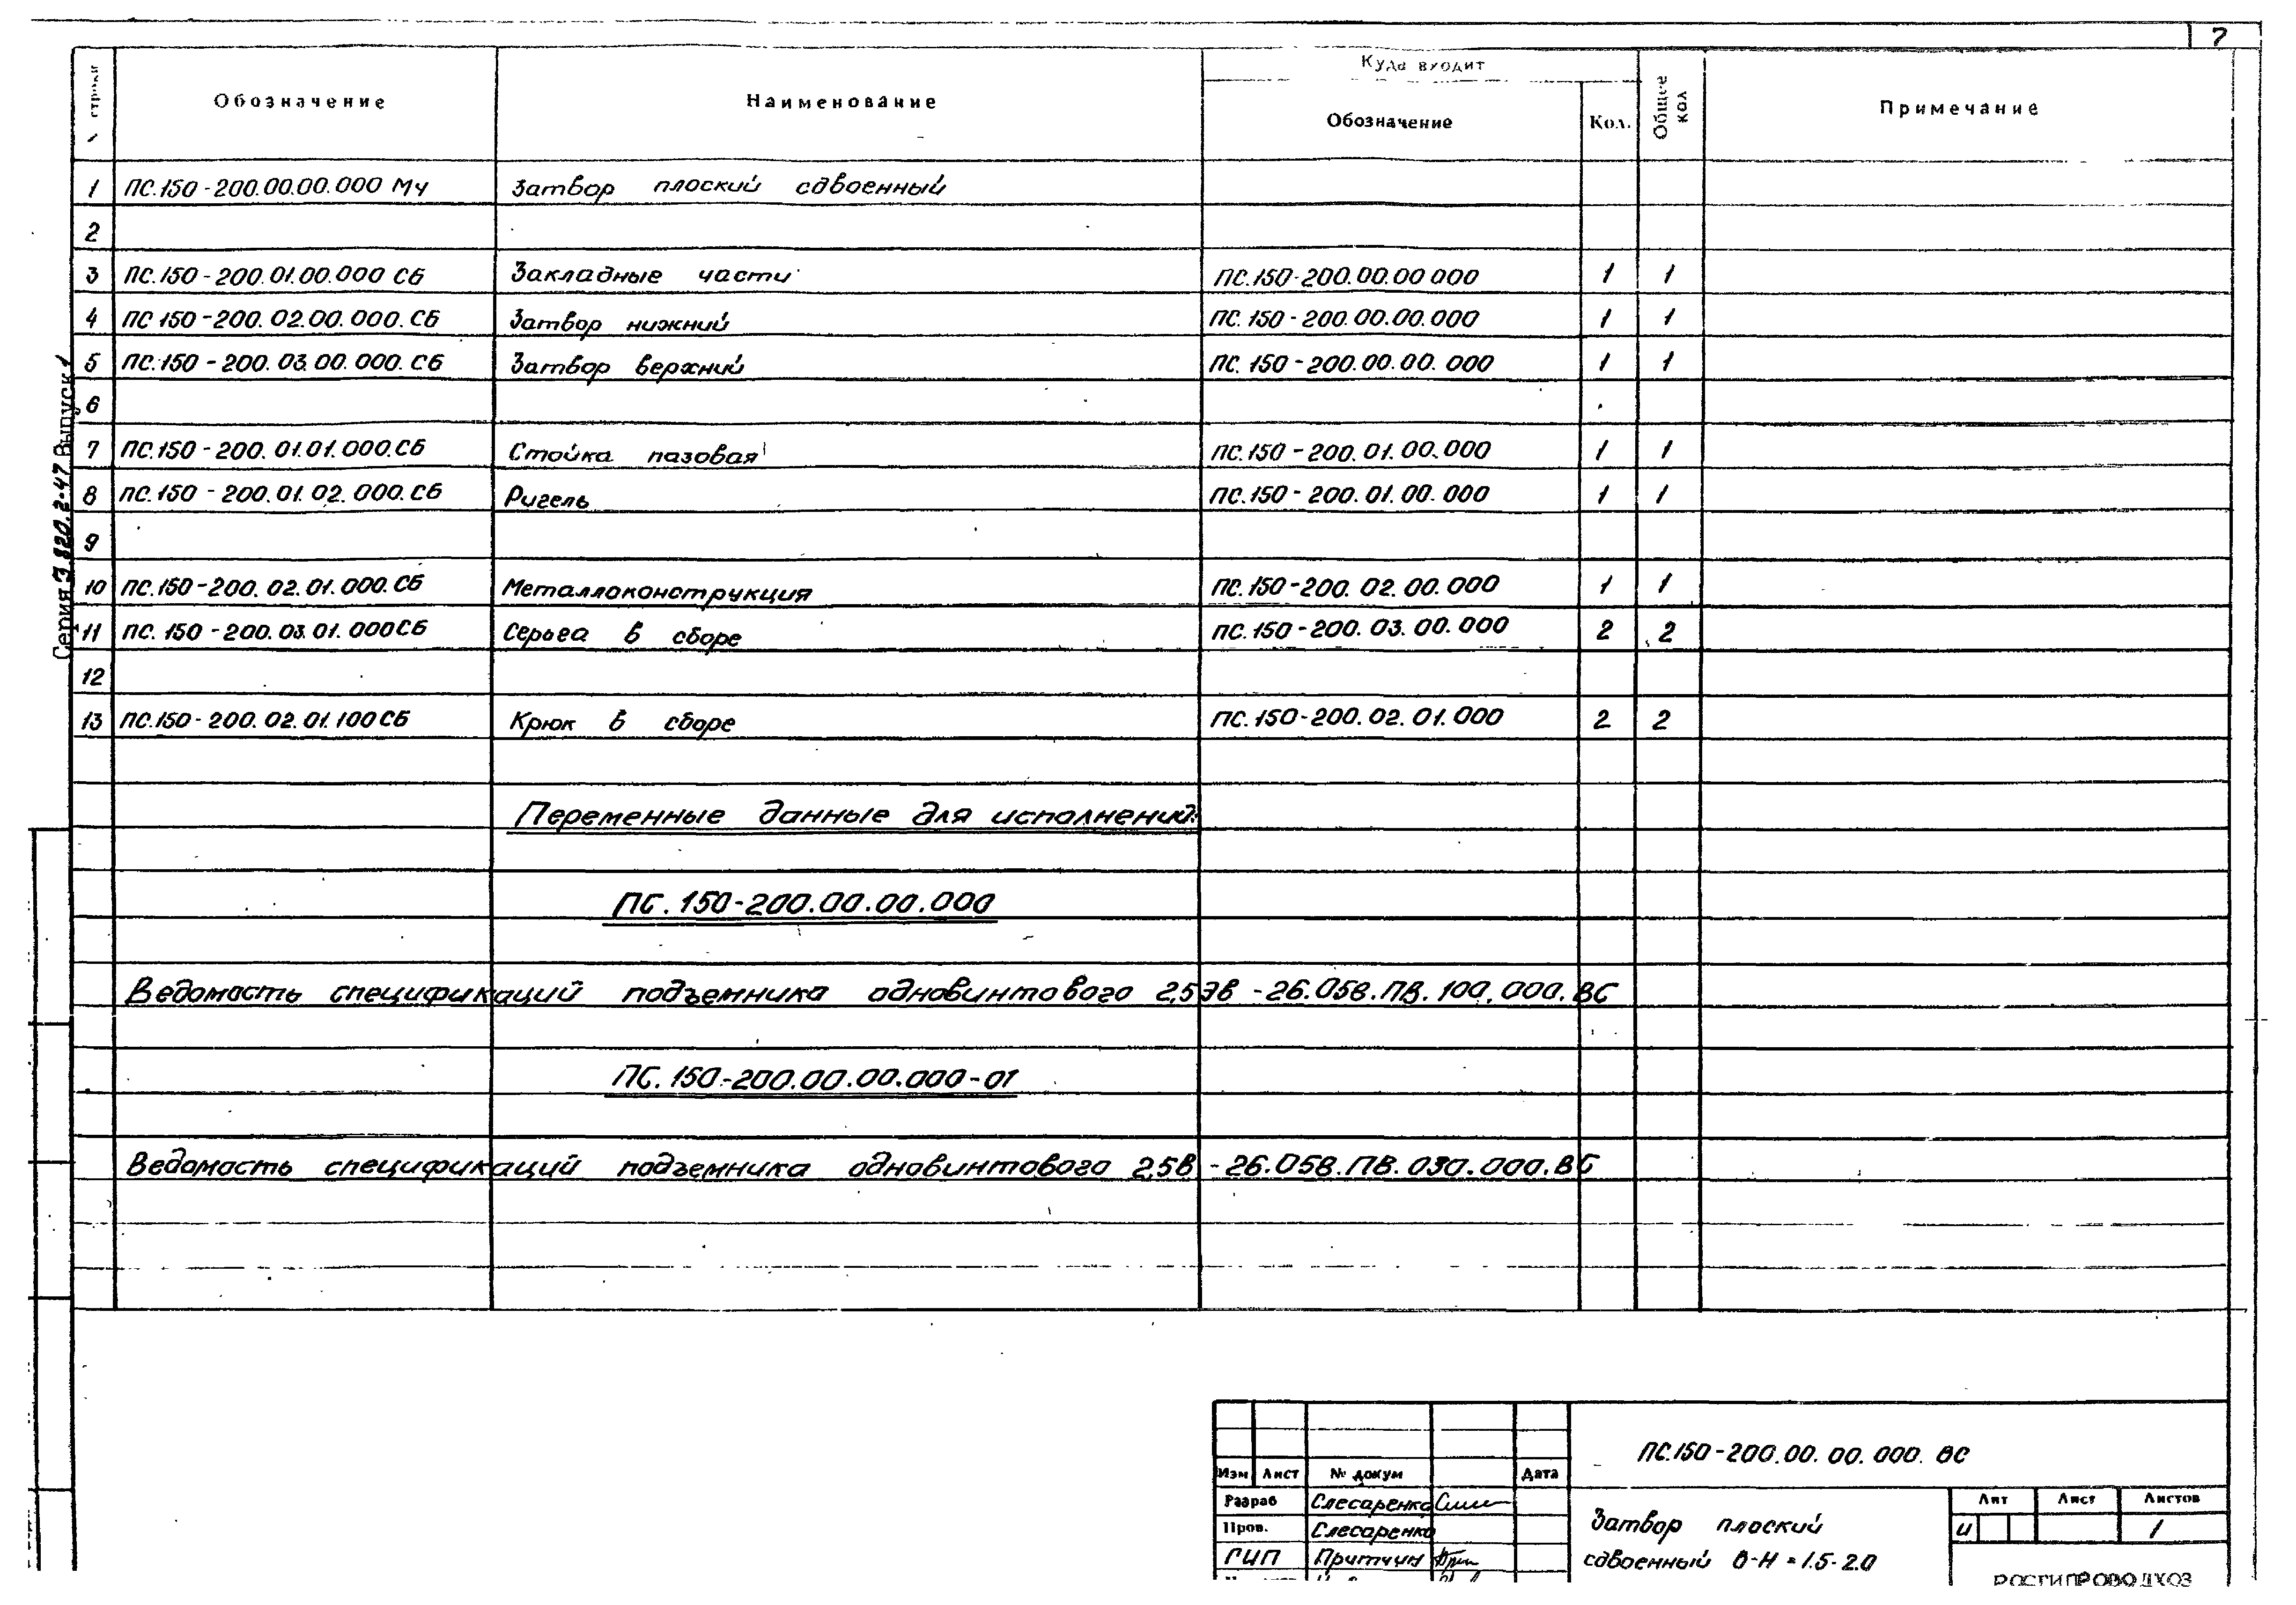 7
№ строки Обозначение Наименование Куда входит Общее кол Примечание
Обозначение Кол.
1 ПС.150-200.00.00.000 МЧ Затвор плоский сдвоенный
2
3 ПС.150-200.01.00.000 СБ Закладные части ПС.150-200.00.00 000 1 1
4 ПС 150-200.02.00.000.СБ Затвор нижний ПС.150-200.00.00.000 1 1
5 ПС.150-200.03.00.000.СБ Затвор верхний ПС.150-200.00.00.000 1 1
6
7 ПС.150-200.01.01.000.СБ Стойка пазовая ПС.150-200.01.00.000 1 1
8 ПС.150-200.01.02.000.СБ Ригель ПС.150-200.01.00.000 1 1
9
10 ПС.150-200.02.01.000.СБ Металлоконструкция ПС.150-200.02.00.000 1 1
11 ПС.150-200.03.01.000СБ Серьга в сборе ПС.150-200.03.00.000 2 2
12
13 ПС.150-200.02.01.100СБ Крюк в сборе ПС.150-200.02.01.000 2 2
Переменные данные для исполнений:
ПС.150-200.00.00.000
Ведомость спецификаций подъемника одновинтового 2,5ЭВ-26.05В.ПВ.100.000.ВС
ПС.150-200.00.00.000-01
Ведомость спецификаций подъемника одновинтового 2,5В-26.05В.ПВ.030.000.ВС
Серия 3.820.2-47 Выпуск 1
ПС.150-200.00.00.000.ВС
Изм Лист № докум Дата
Разраб Слесаренко
Пров. Слесаренко
ГИП Притчин
Затвор плоский
сдвоенный В-Н=1.5-2.0
Лит Лист Листов
И 1
РОСГИПРОВОДХОЗ